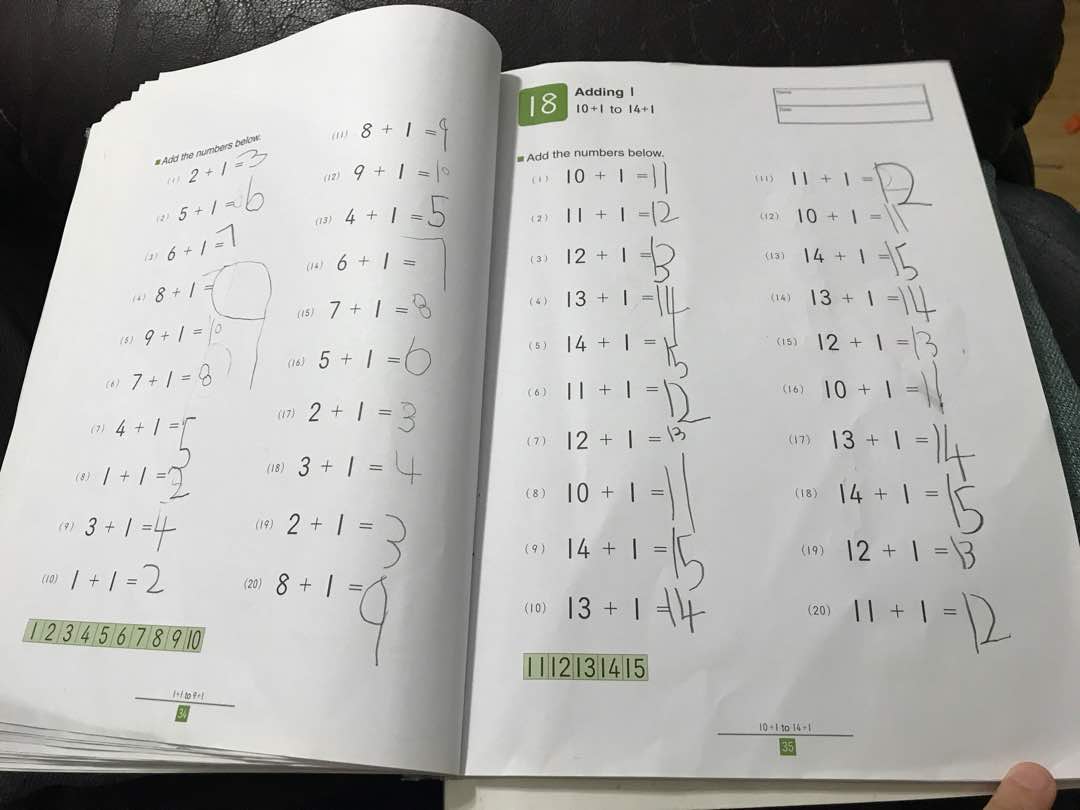 Add the numbers below.
(1) 2 + 1 = 3
(2) 5 + 1 = 6
(3) 6 + 1 = 7
(4) 8 + 1 = 9
(5) 9 + 1 = 10
(6) 7 + 1 = 8
(7) 4 + 1 = 5
(8) 1 + 1 = 2
(9) 3 + 1 = 4
(10) 1 + 1 = 2
1 2 3 4 5 6 7 8 9 10
(11) 8 + 1 = 9
(12) 9 + 1 = 10
(13) 4 + 1 = 5
(14) 6 + 1 = 7
(15) 7 + 1 = 8
(16) 5 + 1 = 6
(17) 2 + 1 = 3
(18) 3 + 1 = 4
(19) 2 + 1 = 3
(20) 8 + 1 = 9
1+1 to 9+1
34
18
Adding 1
10+1 to 14+1
Name
Date
Add the numbers below.
(1) 10 + 1 = 11
(2) 11 + 1 = 12
(3) 12 + 1 = 13
(4) 13 + 1 = 14
(5) 14 + 1 = 15
(6) 11 + 1 = 12
(7) 12 + 1 = 13
(8) 10 + 1 = 11
(9) 14 + 1 = 15
(10) 13 + 1 = 14
11 12 13 14 15
(11) 11 + 1 = 12
(12) 10 + 1 = 11
(13) 14 + 1 = 15
(14) 13 + 1 = 14
(15) 12 + 1 = 13
(16) 10 + 1 = 11
(17) 13 + 1 = 14
(18) 14 + 1 = 15
(19) 12 + 1 = 13
(20) 11 + 1 = 12
10+1 to 14+1
35